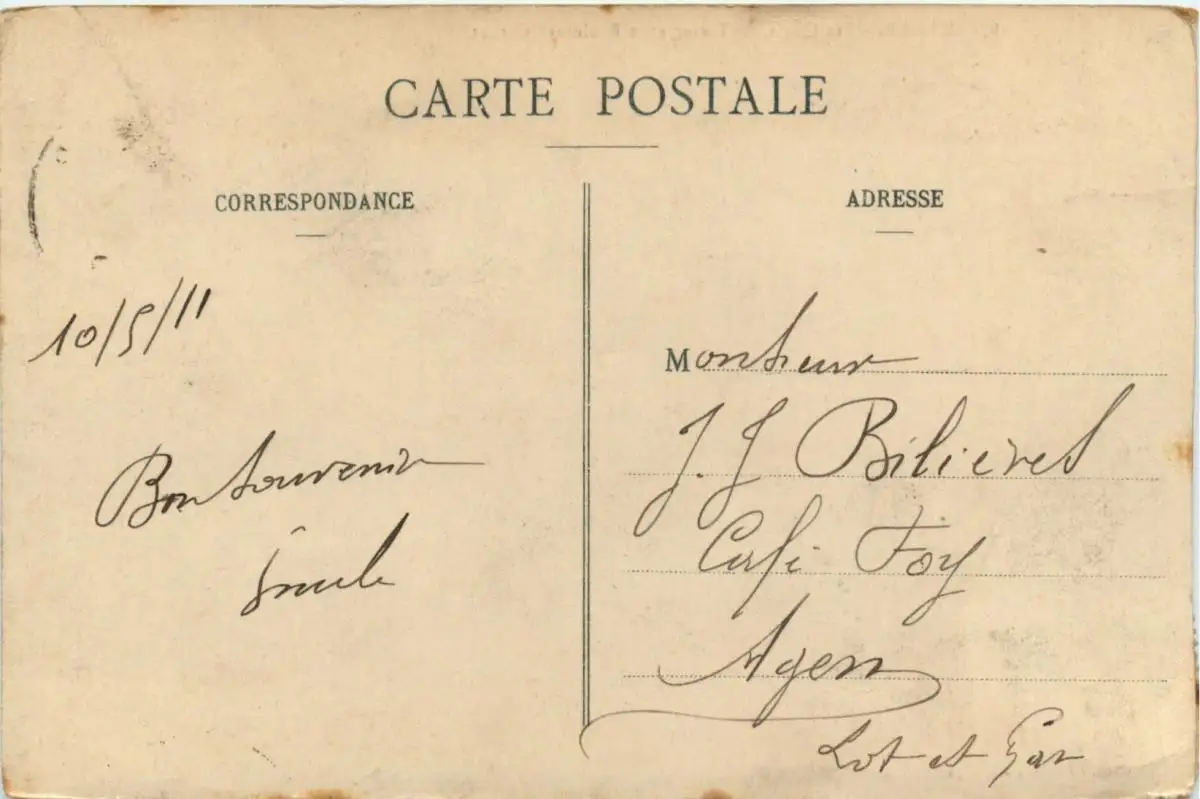 CARTE POSTALE
CORRESPONDANCE
10/5/11
Bon Souvenir
Émile
ADRESSE
Monsieur
J. J Bilières
Café Foy
Agen
Lot et Gar